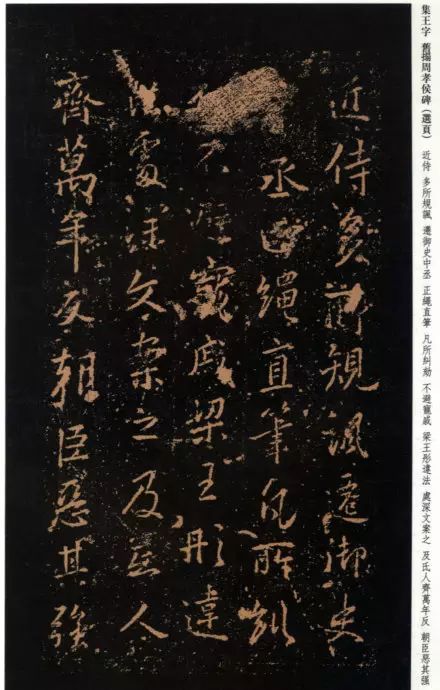 集王字 舊搨周孝侯碑（選頁） 近侍 多所規諷 遷御史中丞 正繩直筆 凡所糾劾 不避寵戚 梁王彤違法 處深文案之 及氐人齊萬年反 朝臣惡其强
近侍多所規諷遷御史
丞正繩直筆凡所糾
不避寵戚梁王彤違
法處深文案之及氐人
齊萬年反朝臣惡其強